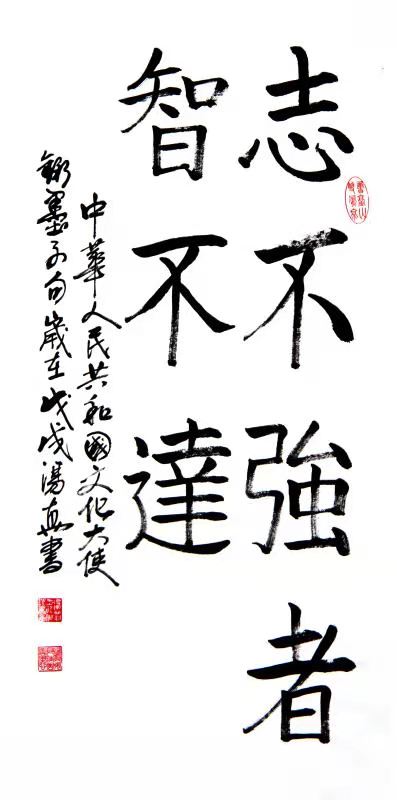 志不強者
智不達
中華人民共和國文化大使
錄墨子句歲在戊戌湯書